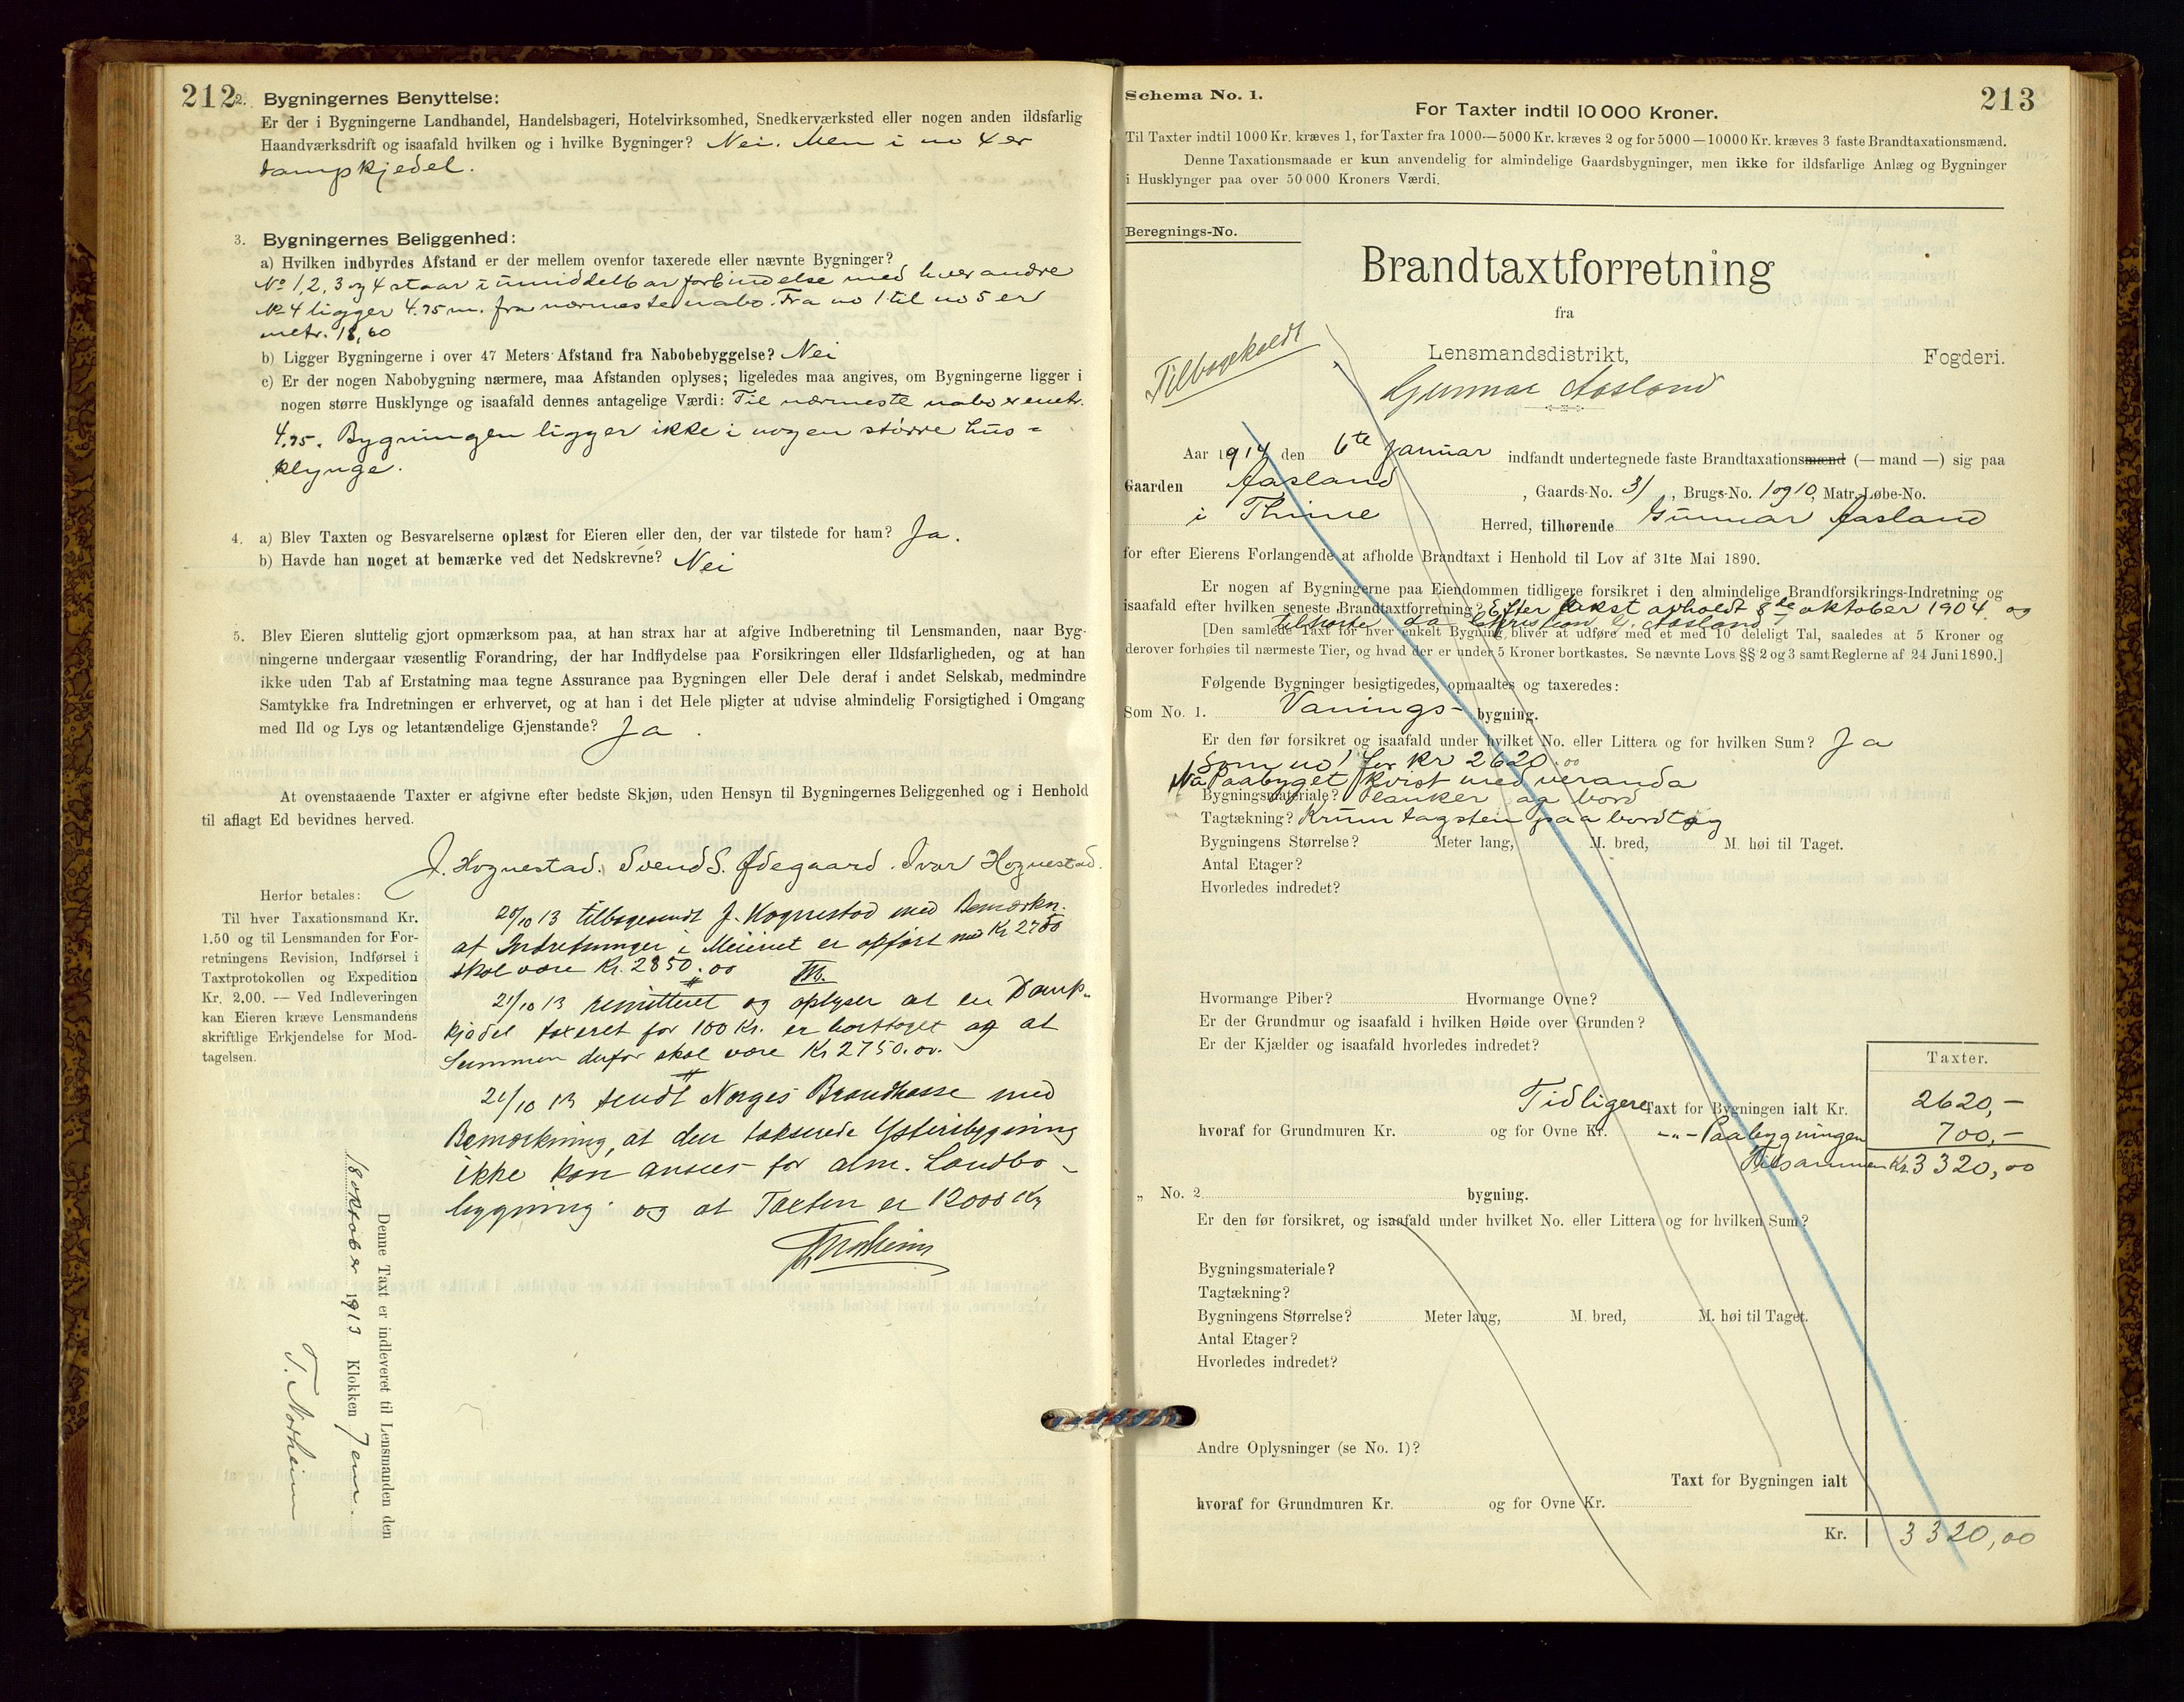 212
2. Bygningernes Benyttelse:
Er der i Bygningerne Landhandel, Handelsbageri, Hotelvirksomhed, Snedkerværksted eller nogen anden ildsfarlig
Haandværksdrift og isaafald hvilken og i hvilke Bygninger? Nei. Men i no 4 er
dampkjedel.
3. Bygningernes Beliggenhed:
a) Hvilken indbyrdes Afstand er der mellem ovenfor taxerede eller nævnte Bygninger?
No 1, 2, 3 og 4 staar i umiddelbar forbindelse med hverandre
No 4 ligger 4.75 m. fra nærmeste nabo. Fra no 1 til no 5 er
metr. 18,60
b) Ligger Bygningerne i over 47 Meters Afstand fra Nabobebyggelse? Nei
c) Er der nogen Nabobygning nærmere, maa Afstanden oplyses; ligeledes maa angives, om Bygningerne ligger i
nogen større Husklynge og isaafald dennes antagelige Værdi: Til nærmeste nabo er metr.
4.75. Bygningen ligger ikke i nogen større hus=
klynge.
4. a) Blev Taxten og Besvarelserne oplæst for Eieren eller den, der var tilstede for ham? Ja.
b) Havde han noget at bemærke ved det Nedskrevne? Nei
5. Blev Eieren sluttelig gjort opmærksom paa, at han strax har at afgive Indberetning til Lensmanden, naar Byg-
ningerne undergaar væsentlig Forandring, der har Indflydelse paa Forsikringen eller Ildsfarligheden, og at han
ikke uden Tab af Erstatning maa tegne Assurance paa Bygningen eller Dele deraf i andet Selskab, medmindre
Samtykke fra Indretningen er erhvervet, og at han i det Hele pligter at udvise almindelig Forsigtighed i Omgang
med Ild og Lys og letantændelige Gjenstande? Ja.
At ovenstaaende Taxter er afgivne efter bedste Skjøn, uden Hensyn til Bygningernes Beliggenhed og i Henhold
til aflagt Ed bevidnes herved.
J. Hognestad. Svend S. Ødegaard. Ivar Hognestad.
Herfor betales:
Til hver Taxationsmand Kr.
1.50 og til Lensmanden for For-
retningens Revision, Indførsel i
Taxtprotokollen og Expedition
Kr. 2.00. — Ved Indleveringen
kan Eieren kræve Lensmandens
skriftlige Erkjendelse for Mod-
tagelsen.
20/10 13 tilbagesendt J. Hognestad med Bemærkn.
at Indretninger i Meieriet er opført med Kr 2750
skal være Kr. 2850.00
21/10 13 remitteret og oplyser at en Damp-
kjedel taxeret for 100 Kr. er borttaget og at
Summen derfor skal være Kr 2750.00.
21/10 13 sendt Norges Brandkasse med
Bemærkning, at den takserede Ysteribygning
ikke kan ansees for alm. Landbo-
bygning og at Taxten er 12000 Kr
Denne Taxt er indleveret til Lensmanden den
18 oktober 1913 Klokken 7 em.
T. Norheim
213
Schema No. 1.
For Taxter indtil 10 000 Kroner.
Til Taxter indtil 1000 Kr. kræves 1, for Taxter fra 1000—5000 Kr. kræves 2 og for 5000—10000 Kr. kræves 3 faste Brandtaxationsmænd.
Denne Taxationsmaade er kun anvendelig for almindelige Gaardsbygninger, men ikke for ildsfarlige Anlæg og Bygninger
i Husklynger paa over 50 000 Kroners Værdi.
Beregnings-No.
Brandtaxtforretning
fra
Tilbagekaldt
Lensmandsdistrikt, Fogderi.
Gunnar Aasland
Aar 1914 den 6te Januar indfandt undertegnede faste Brandtaxationsmænd (— mand —) sig paa
Gaarden Aasland, Gaards-No. 31, Brugs-No. 1 og 10, Matr.-Løbe-No.
i Thime Herred, tilhørende Gunnar Aasland
for efter Eierens Forlangende at afholde Brandtaxt i Henhold til Lov af 31te Mai 1890.
Er nogen af Bygningerne paa Eiendommen tidligere forsikret i den almindelige Brandforsikrings-Indretning og
isaafald efter hvilken seneste Brandtaxtforretning? Efter takst avholdt 8de oktober 1904 og
tilhørte da G. Aasland
[Den samlede Taxt for hver enkelt Bygning bliver at udføre med et med 10 deleligt Tal, saaledes at 5 Kroner og
derover forhøies til nærmeste Tier, og hvad der er under 5 Kroner bortkastes. Se nævnte Lovs §§ 2 og 3 samt Reglerne af 24 Juni 1890.]
Følgende Bygninger besigtigedes, opmaaltes og taxeredes:
Som No. 1. Vanings-bygning.
Er den før forsikret og isaafald under hvilket No. eller Littera og for hvilken Sum? Ja
Som no 1 for Kr 2620.00
Nu Paabyget kvist med veranda
Bygningsmateriale? Planker og bord
Tagtækning? Krumtagsten paa bordtag
Bygningens Størrelse? Meter lang, M. bred, M. høi til Taget.
Antal Etager?
Hvorledes indredet?
Hvormange Piber? Hvormange Ovne?
Er der Grundmur og isaafald i hvilken Høide over Grunden?
Er der Kjælder og isaafald hvorledes indredet?
Taxter.
Tidligere Taxt for Bygningen ialt Kr. 2620,-
hvoraf for Grundmuren Kr. og for Ovne Kr. -"- Paabygningen 700,-
Tilsammen Kr. 3320,00
„ No. 2 bygning.
Er den før forsikret, og isaafald under hvilket No. eller Littera og for hvilken Sum?
Bygningsmateriale?
Tagtækning?
Bygningens Størrelse? Meter lang, M. bred, M. høi til Taget.
Antal Etager?
Hvorledes indredet?
Andre Oplysninger (se No. 1)?
Taxt for Bygningen ialt
hvoraf for Grundmuren Kr. og for Ovne Kr.
Kr. 3320,00